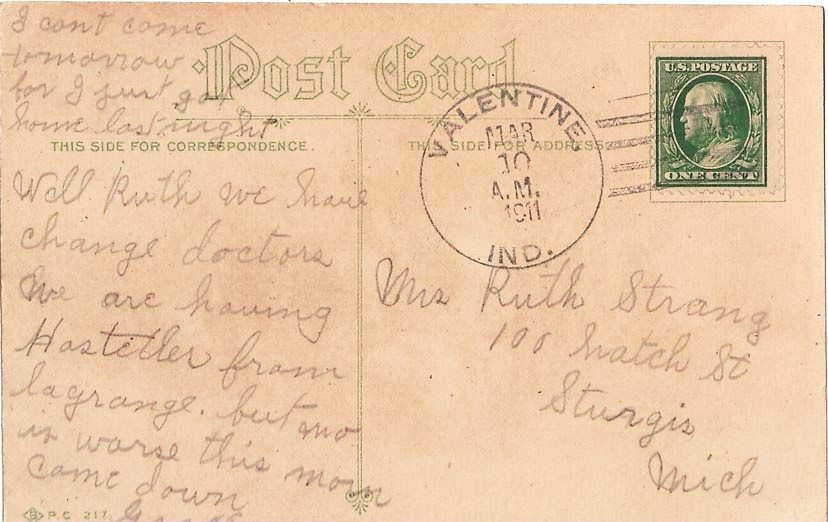 I cant come
tomorrow
for I just got
home last night
Post Card
THIS SIDE FOR CORRESPONDENCE.
THIS SIDE FOR ADDRESS.
VALENTINE,
MAR
10
A.M.
1911
IND.
U.S. POSTAGE
ONE CENT
Well Ruth we have
change doctors
We are having
Hostetler from
lagrange. but mo
is worse this morn
Come down
Mrs Ruth Strang
100 hatch St
Sturgis
Mich
P.C. 217